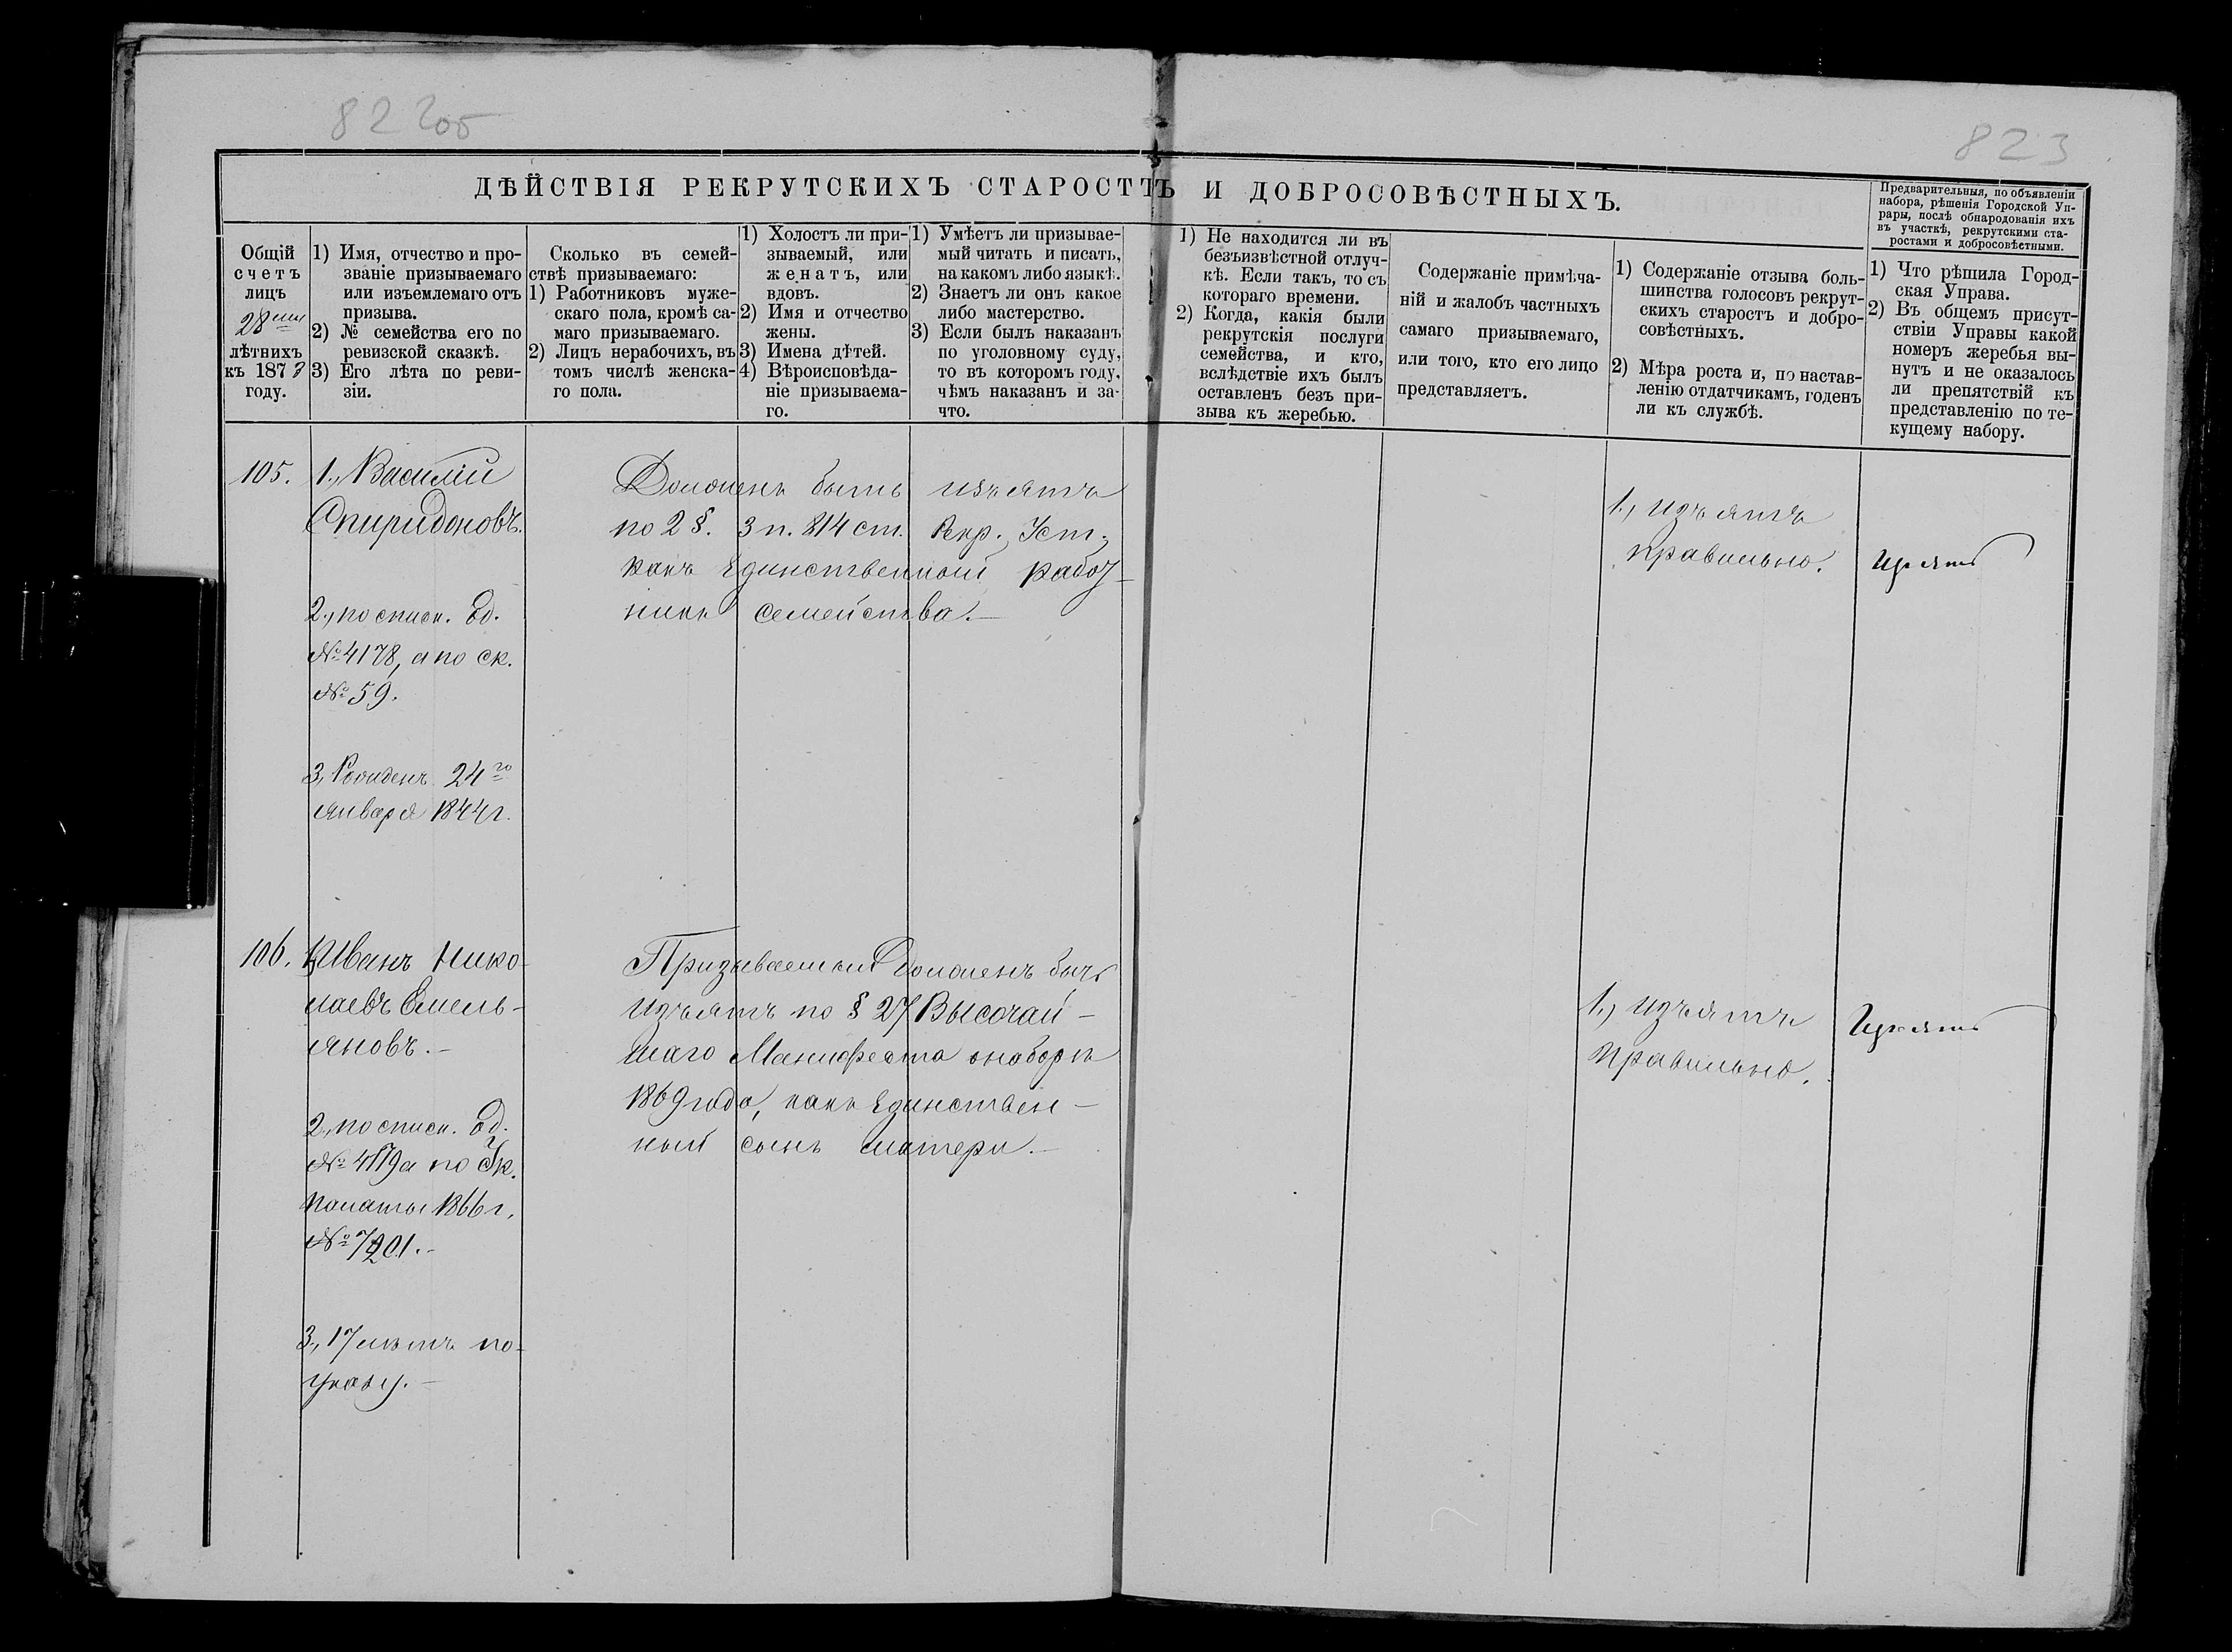 822об
823
ДѢЙСТВІЯ РЕКРУТСКИХЪ СТАРОСТЪ И ДОБРОСОВѢСТНЫХЪ.
Предварительныя, по объявленіи
набора, рѣшенія Городской Уп-
равы, послѣ обнародованія ихъ
въ участкѣ, рекрутскими ста-
ростами и добросовѣстными.
Общій
счетъ
лицъ
28ми
лѣтнихъ
къ 1873
году.
1) Имя, отчество и про-
званіе призываемаго
или изъемлемаго отъ
призыва.
2) № семейства его по
ревизской сказкѣ.
3) Его лѣта по реви-
зіи.
Сколько въ семей-
ствѣ призываемаго:
1) Работниковъ муже-
скаго пола, кромѣ са-
маго призываемаго.
2) Лицъ нерабочихъ, въ
томъ числѣ женска-
го пола.
1) Холостъ ли при-
зываемый, или
женатъ, или
вдовъ.
2) Имя и отчество
жены.
3) Имена дѣтей.
4) Вѣроисповѣда-
ніе призываема-
го.
1) Умѣетъ ли призывае-
мый читать и писать,
на какомъ либо языкѣ.
2) Знаетъ ли онъ какое
либо мастерство.
3) Если былъ наказанъ
по уголовному суду,
то въ которомъ году,
чѣмъ наказанъ и за-
что.
1) Не находится ли въ
безъизвѣстной отлуч-
кѣ. Если такъ, то съ
котораго времени.
2) Когда, какія были
рекрутскія послуги
семейства, и кто,
вслѣдствіе ихъ былъ
оставленъ безъ при-
зыва къ жеребью.
Содержаніе примѣча-
ній и жалобъ частныхъ
самаго призываемаго,
или того, кто его лицо
представляетъ.
1) Содержаніе отзыва боль-
шинства голосовъ рекрут-
скихъ старостъ и добро-
совѣстныхъ.
2) Мѣра роста и, по настав-
ленію отдатчикамъ, годенъ
ли къ службѣ.
1) Что рѣшила Город-
ская Управа.
2) Въ общемъ присут-
ствіи Управы какой
номеръ жеребья вы-
нутъ и не оказалось
ли препятствій къ
представленію по те-
кущему набору.
105.
1., Василій
Спиридоновъ.
2., по списк. Од.
№ 4178, а по ск.
№ 59.
3, Рожденъ 24го
января 1844 г.
Долженъ быть изъятъ
по 2 §. 3 п. 814 ст. Рекр. Уст.,
какъ Единственный работ-
никъ семейства.—
1., изъятъ
правильно.
Изъять
106.
1, Иванъ Нико-
лаевъ Емель-
яновъ.—
2., по списк. Од.
№ 4179 а по Ук.
Палаты 1866 г.
№ 7201.—
3., 17 лѣтъ по-
указу.—
Призываемый Долженъ быть
изъятъ по § 27 Высочай-
шаго Манифеста о наборѣ
1869 года, какъ Единствен-
ный сынъ матери.—
1., изъятъ
правильно.
Изъять